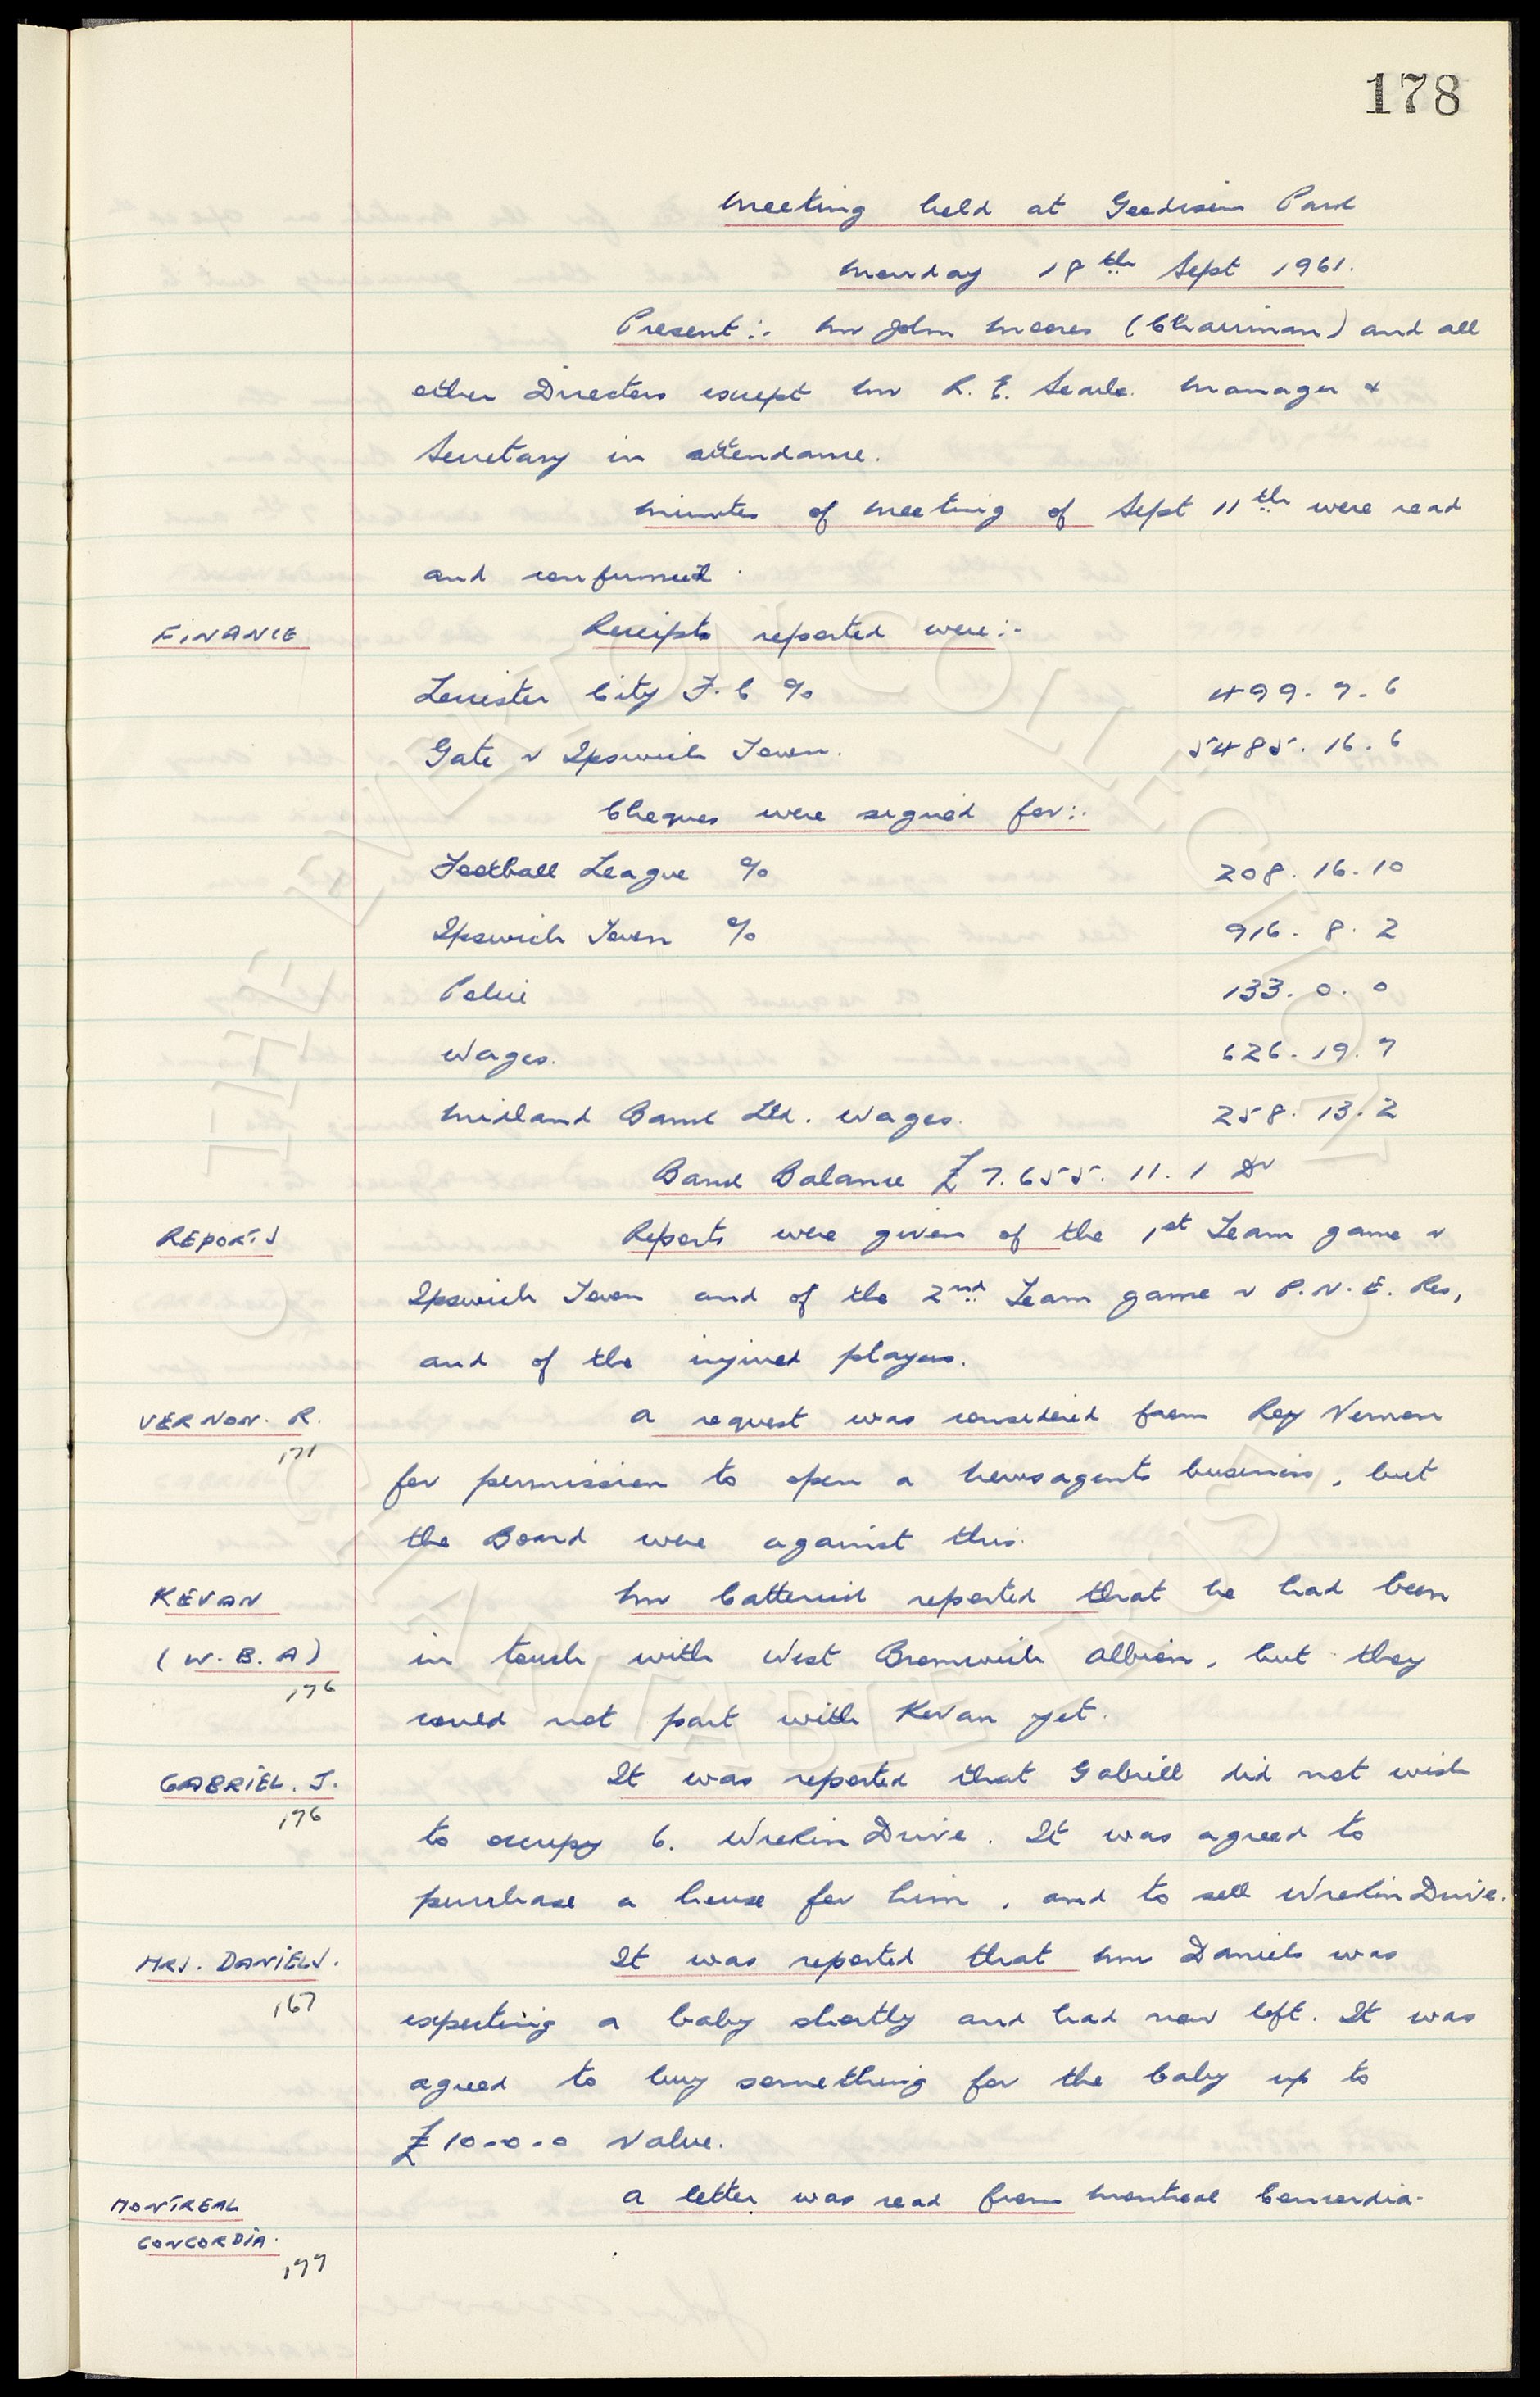 178
Meeting held at Goodison Park
Monday 18th Sept 1961.
Present:- Mr John Moores (Chairman) and all
other Directors except Mr R. E. Searle. Manager &
Secretary in attendance.
Minutes of meeting of Sept 11th were read
and confirmed.
FINANCE Receipts reported were:-
Leicester City F.C % 499. 7. 6
Gate v Ipswich Town. 5485. 16. 6
Cheques were signed for:-
Football League % 208. 16. 10
Ipswich Town % 916. 8. 2
Police 133. 0. 0
Wages. 626. 19. 7
Midland Bank Ltd. Wages. 258. 13. 2
Bank Balance £7.655. 11. 1 Dr
REPORTS Reports were given of the 1st Team game v
Ipswich Town and of the 2nd Team game v P.N.E. Res,
and of the injured players.
VERNON. R. A request was considered from Roy Vernon
171 for permission to open a newsagents business, but
the Board were against this.
KEVAN Mr Catterick reported that he had been
(W.B.A) in touch with West Bromwich Albion, but they
176 could not part with Kevan yet.
GABRIEL. J. It was reported that Gabriell did not wish
176 to occupy 6. Wrekin Drive. It was agreed to
purchase a house for him, and to sell Wrekin Drive.
MRS. DANIELS. It was reported that Mrs Daniels was
167 expecting a baby shortly and had now left. It was
agreed to buy something for the baby up to
£10-0-0 value.
MONTREAL A letter was read from Montreal Concordia.
CONCORDIA.
177